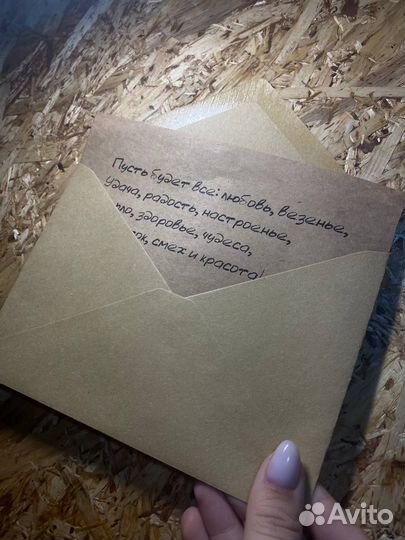 Пусть будет все: любовь, везенье,
удача, радость, настроенье,
здоровье, чудеса,
смех и красота!
Avito